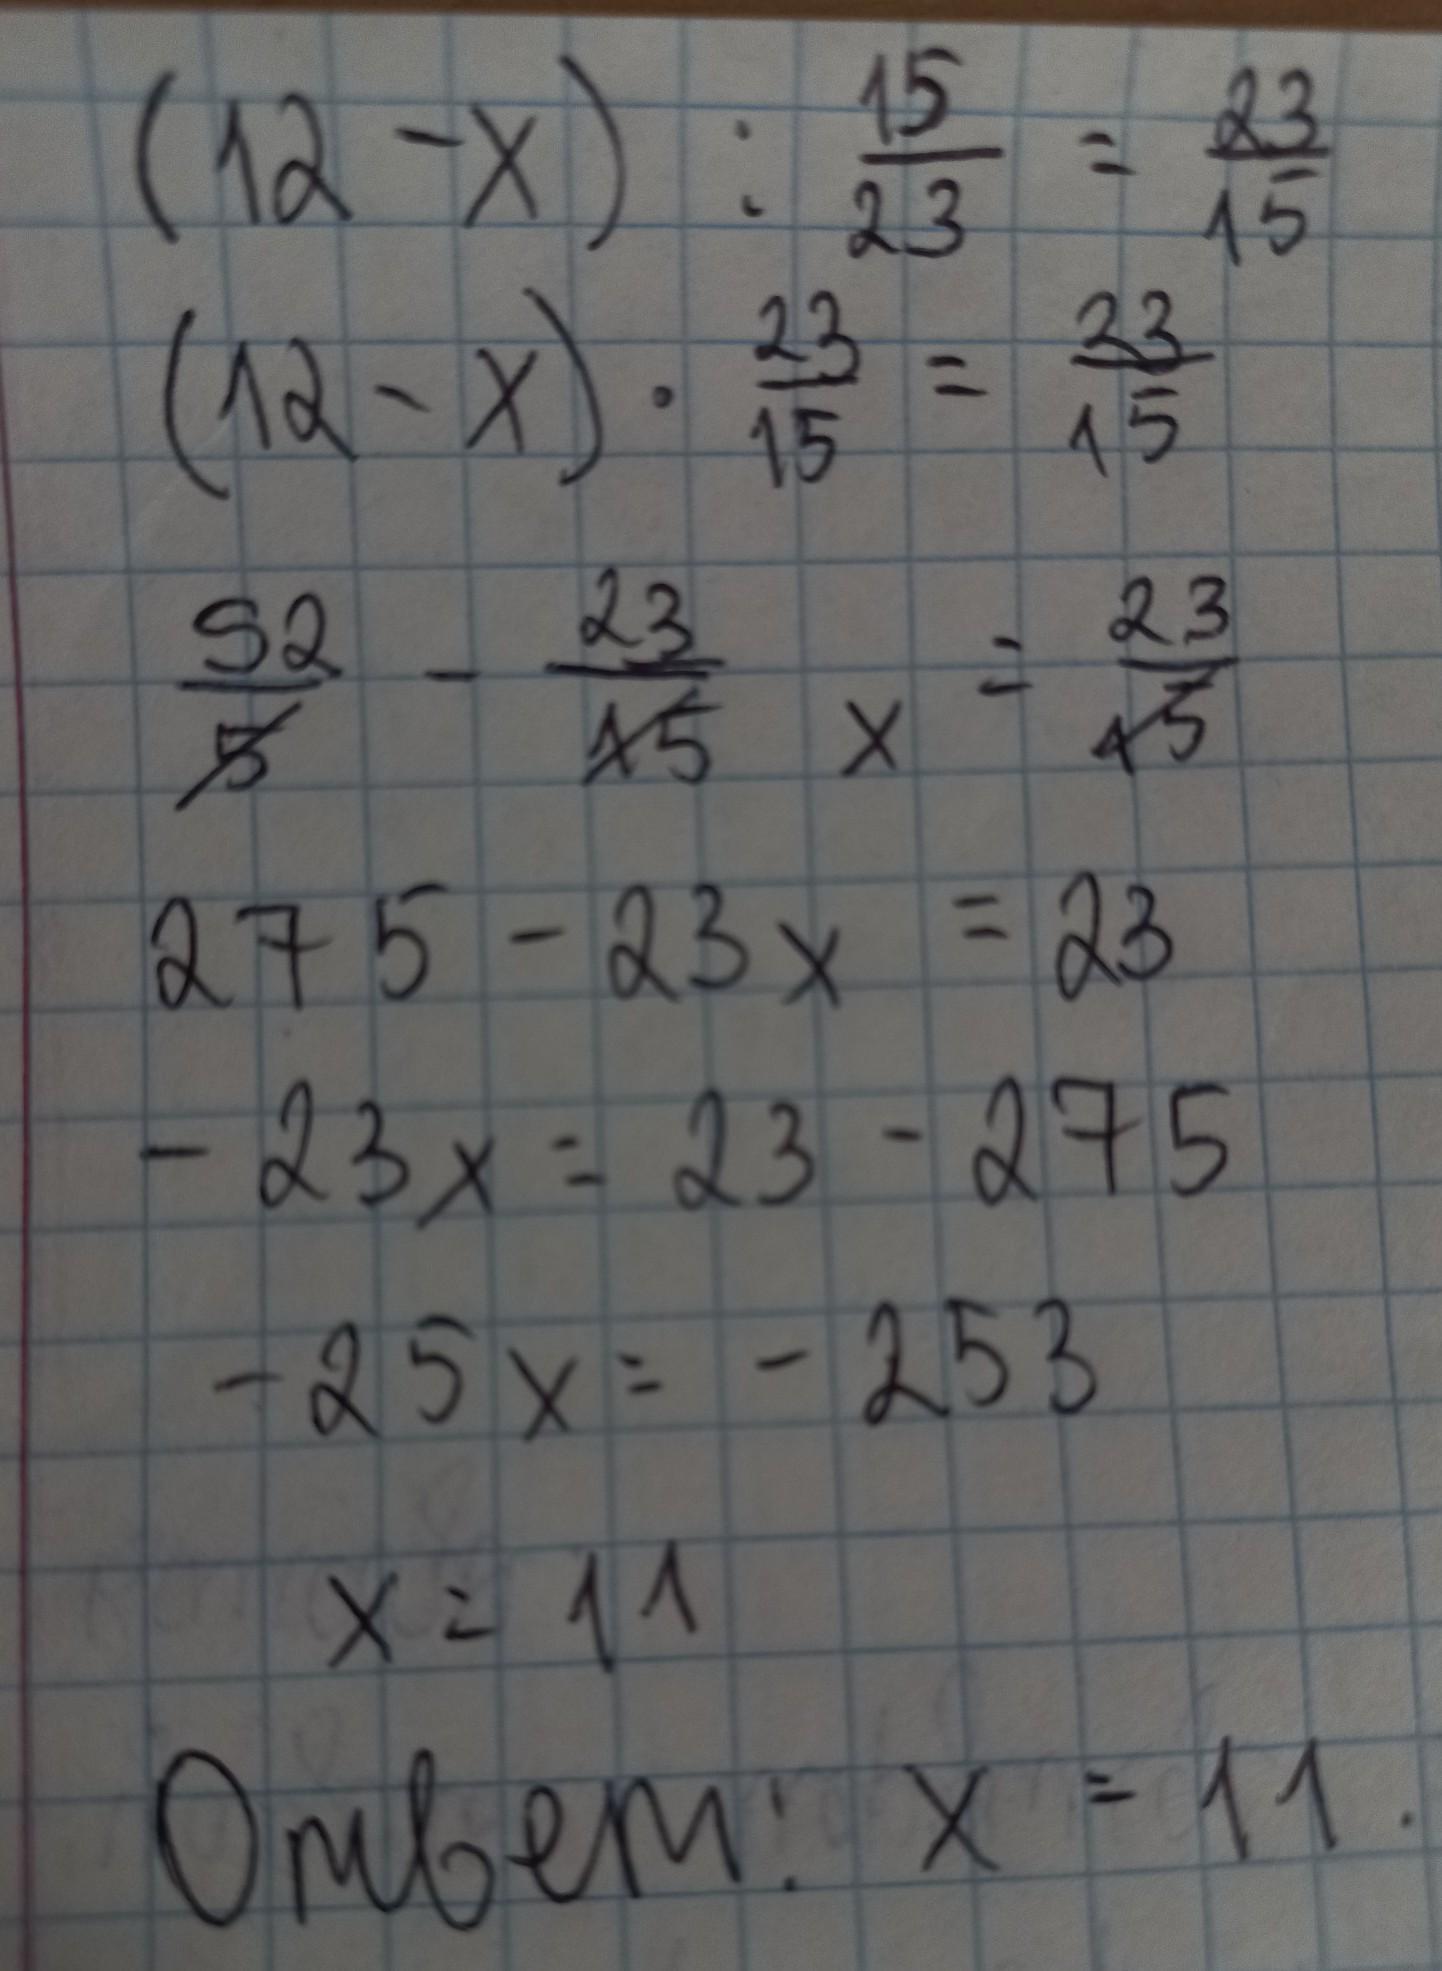 (12 - x) : 15/23 = 23/15
(12 - x) · 23/15 = 23/15
92/5 - 23/15 x = 23/15
275 - 23x = 23
- 23x = 23 - 275
- 25x = - 253
x = 11
Ответ: x = 11.